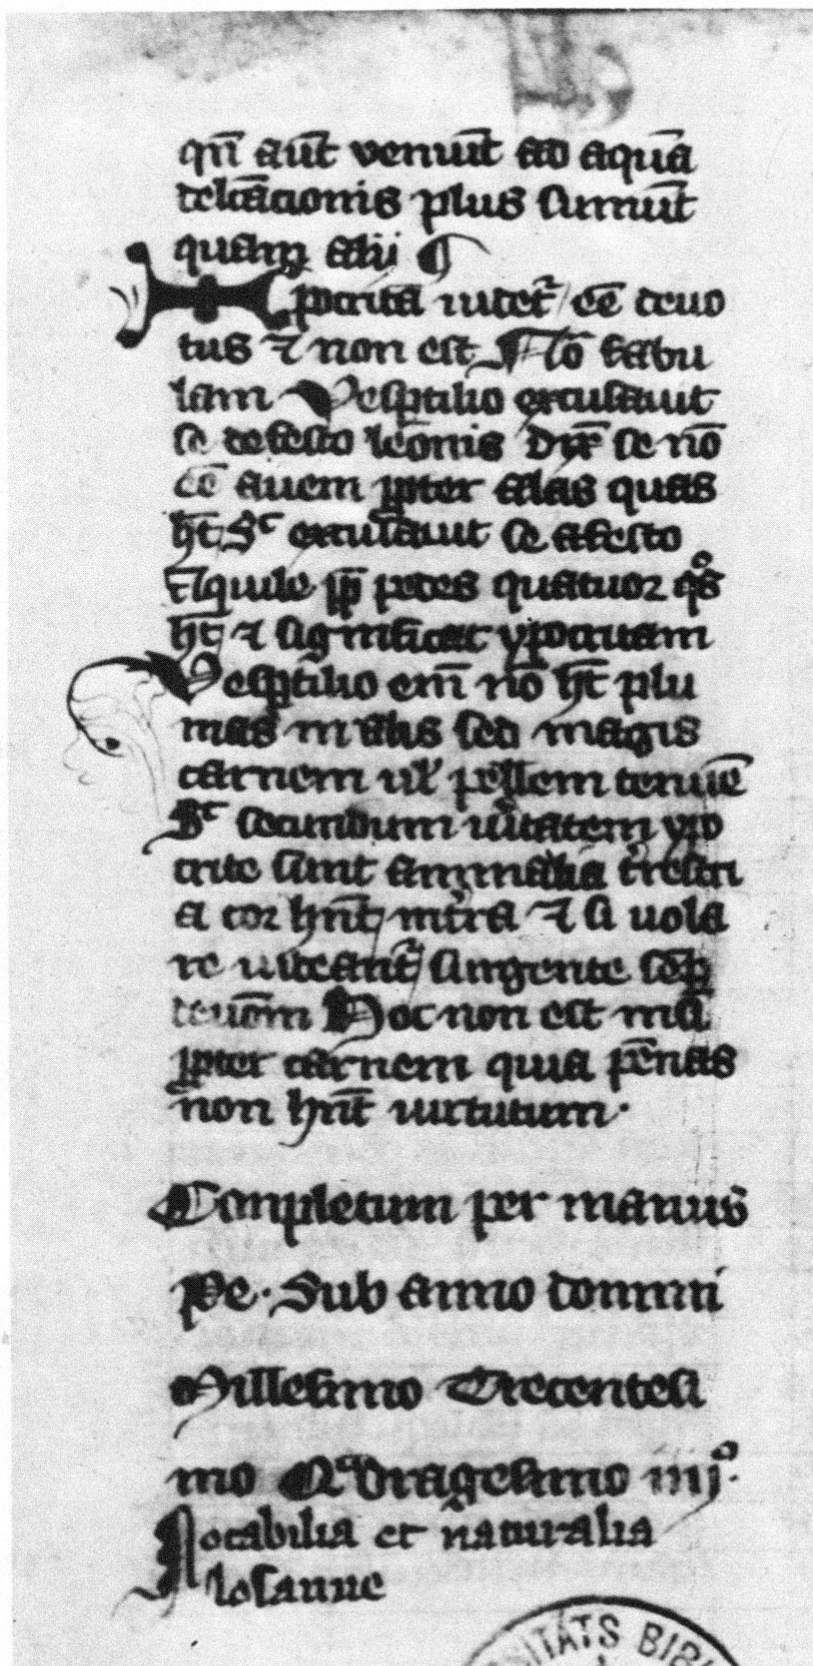 qn̄ aūt veniūt ad aquā
delcācionis plus sumūt
quam alii ¶
Ipocrita videt᷑ eē deuo
tus ⁊ non est Nō fabu
lam Vesptilio excusauit
se de festo leōnis dix̄ se nō
eē auem ꝓpter alas quas
hꝫ Sᶜ excusauit se a festo
Aquile ꝓp̄ pedes quatuor q̊s
hꝫ ⁊ significat ypocritam
Vesptilio em̄ nō hꝫ plu
mas in alis sed magis
carnem ul̓ pellem tenuē
Sᶜ secundum u̓itatem ypo
crite sunt animalia t̓restri
a cor hn̄t int̓ra ⁊ si uola
re uideant᷑ surgente semp̄
deuōm Hoc non est nisi
ꝓpter carnem quia pēnas
non hn̄t uirtutum·
Conpletum per manus
Pe· Sub anno domini
Millesimo Trecentesi
mo Qᵃdragesimo iiijº·
Notabilia et naturalia
losanne
SITÄTS BIBL